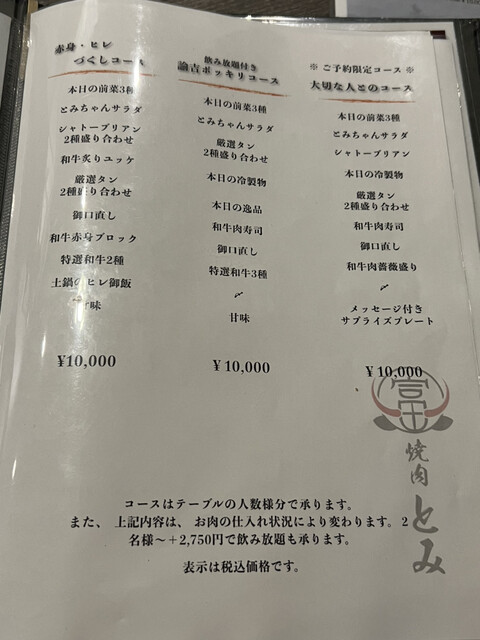 赤身・ヒレ
づくしコース
本日の前菜3種
とみちゃんサラダ
シャトーブリアン
2種盛り合わせ
和牛炙りユッケ
厳選タン
2種盛り合わせ
御口直し
和牛赤身ブロック
特選和牛2種
土鍋のヒレ御飯
甘味
¥10,000
飲み放題付き
諭吉ポッキリコース
本日の前菜3種
とみちゃんサラダ
厳選タン
2種盛り合わせ
本日の冷製物
本日の逸品
和牛肉寿司
御口直し
特選和牛3種
甘味
¥10,000
※ ご予約限定コース ※
大切な人とのコース
本日の前菜3種
とみちゃんサラダ
シャトーブリアン
本日の冷製物
厳選タン
2種盛り合わせ
和牛肉寿司
御口直し
和牛肉薔薇盛り
メッセージ付き
サプライズプレート
¥10,000
富
焼肉とみ
コースはテーブルの人数様分で承ります。
また、上記内容は、お肉の仕入れ状況により変わります。2
名様～＋2,750円で飲み放題も承ります。
表示は税込価格です。